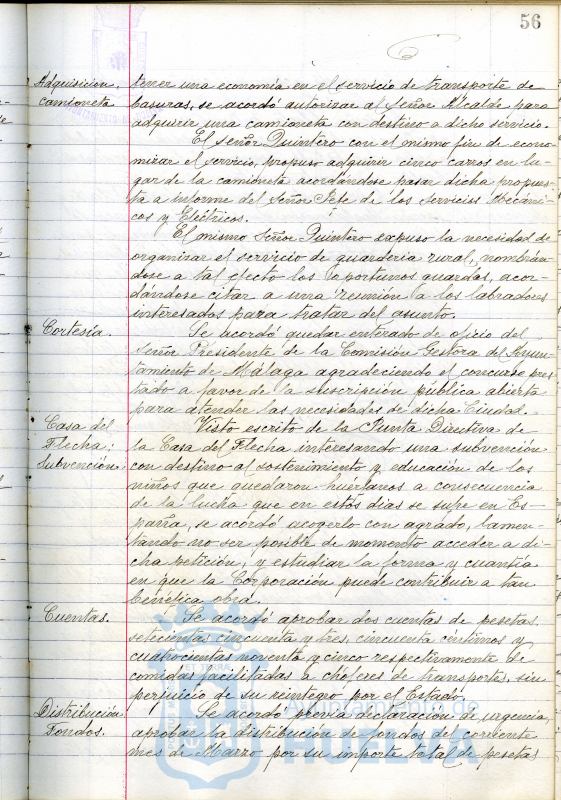 56
Adquisicion, camioneta
tener una economía en el servicio de transporte de
basuras, se acordó autorizar al Señor Alcalde para
adquirir una camioneta con destino a dicho servicio.
El señor Quintero con el mismo fin de econo-
mizar el servicio, propuso adquirir cinco carros en lu-
gar de la camioneta acordándose pasar dicha propues-
ta a informe del Señor Jefe de los servicios Mecáni-
cos y Eléctricos.
El mismo Señor Quintero expuso la necesidad de
organizar el servicio de guardería rural, nombrán-
dose a tal efecto los oportunos guardas, acor-
dándose citar a una reunión a los labradores
interesados para tratar del asunto.
Cortesía.
Se acordó quedar enterado de oficio del
Señor Presidente de la Comisión Gestora del Ayun-
tamiento de Málaga agradeciendo el concurso pres-
tado a favor de la suscripción pública abierta
para atender las necesidades de dicha Ciudad.
Casa del
Flecha:
Subvención.
Visto escrito de la Junta Directiva de
la Casa del Flecha interesando una subvención
con destino al sostenimiento y educación de los
niños que quedaron huérfanos a consecuencia
de la lucha que en estos días se sufre en Es-
paña, se acordó acogerlo con agrado, lamen-
tando no ser posible de momento acceder a di-
cha petición, y estudiar la forma y cuantía
en que la Corporación puede contribuir a tan
benéfica obra.
Cuentas.
Se acordó aprobar dos cuentas de pesetas
setecientas cincuenta y tres, cincuenta céntimos y
cuatrocientas noventa y cinco respectivamente de
comidas facilitadas a choferes de transportes, sin
perjuicio de su reintegro por el Estado.
Distribución
Fondos.
Se acordó previa declaración de urgencia,
aprobar la distribución de fondos del corriente
mes de Marzo por su importe total de pesetas
Ayuntamiento de
HUELVA